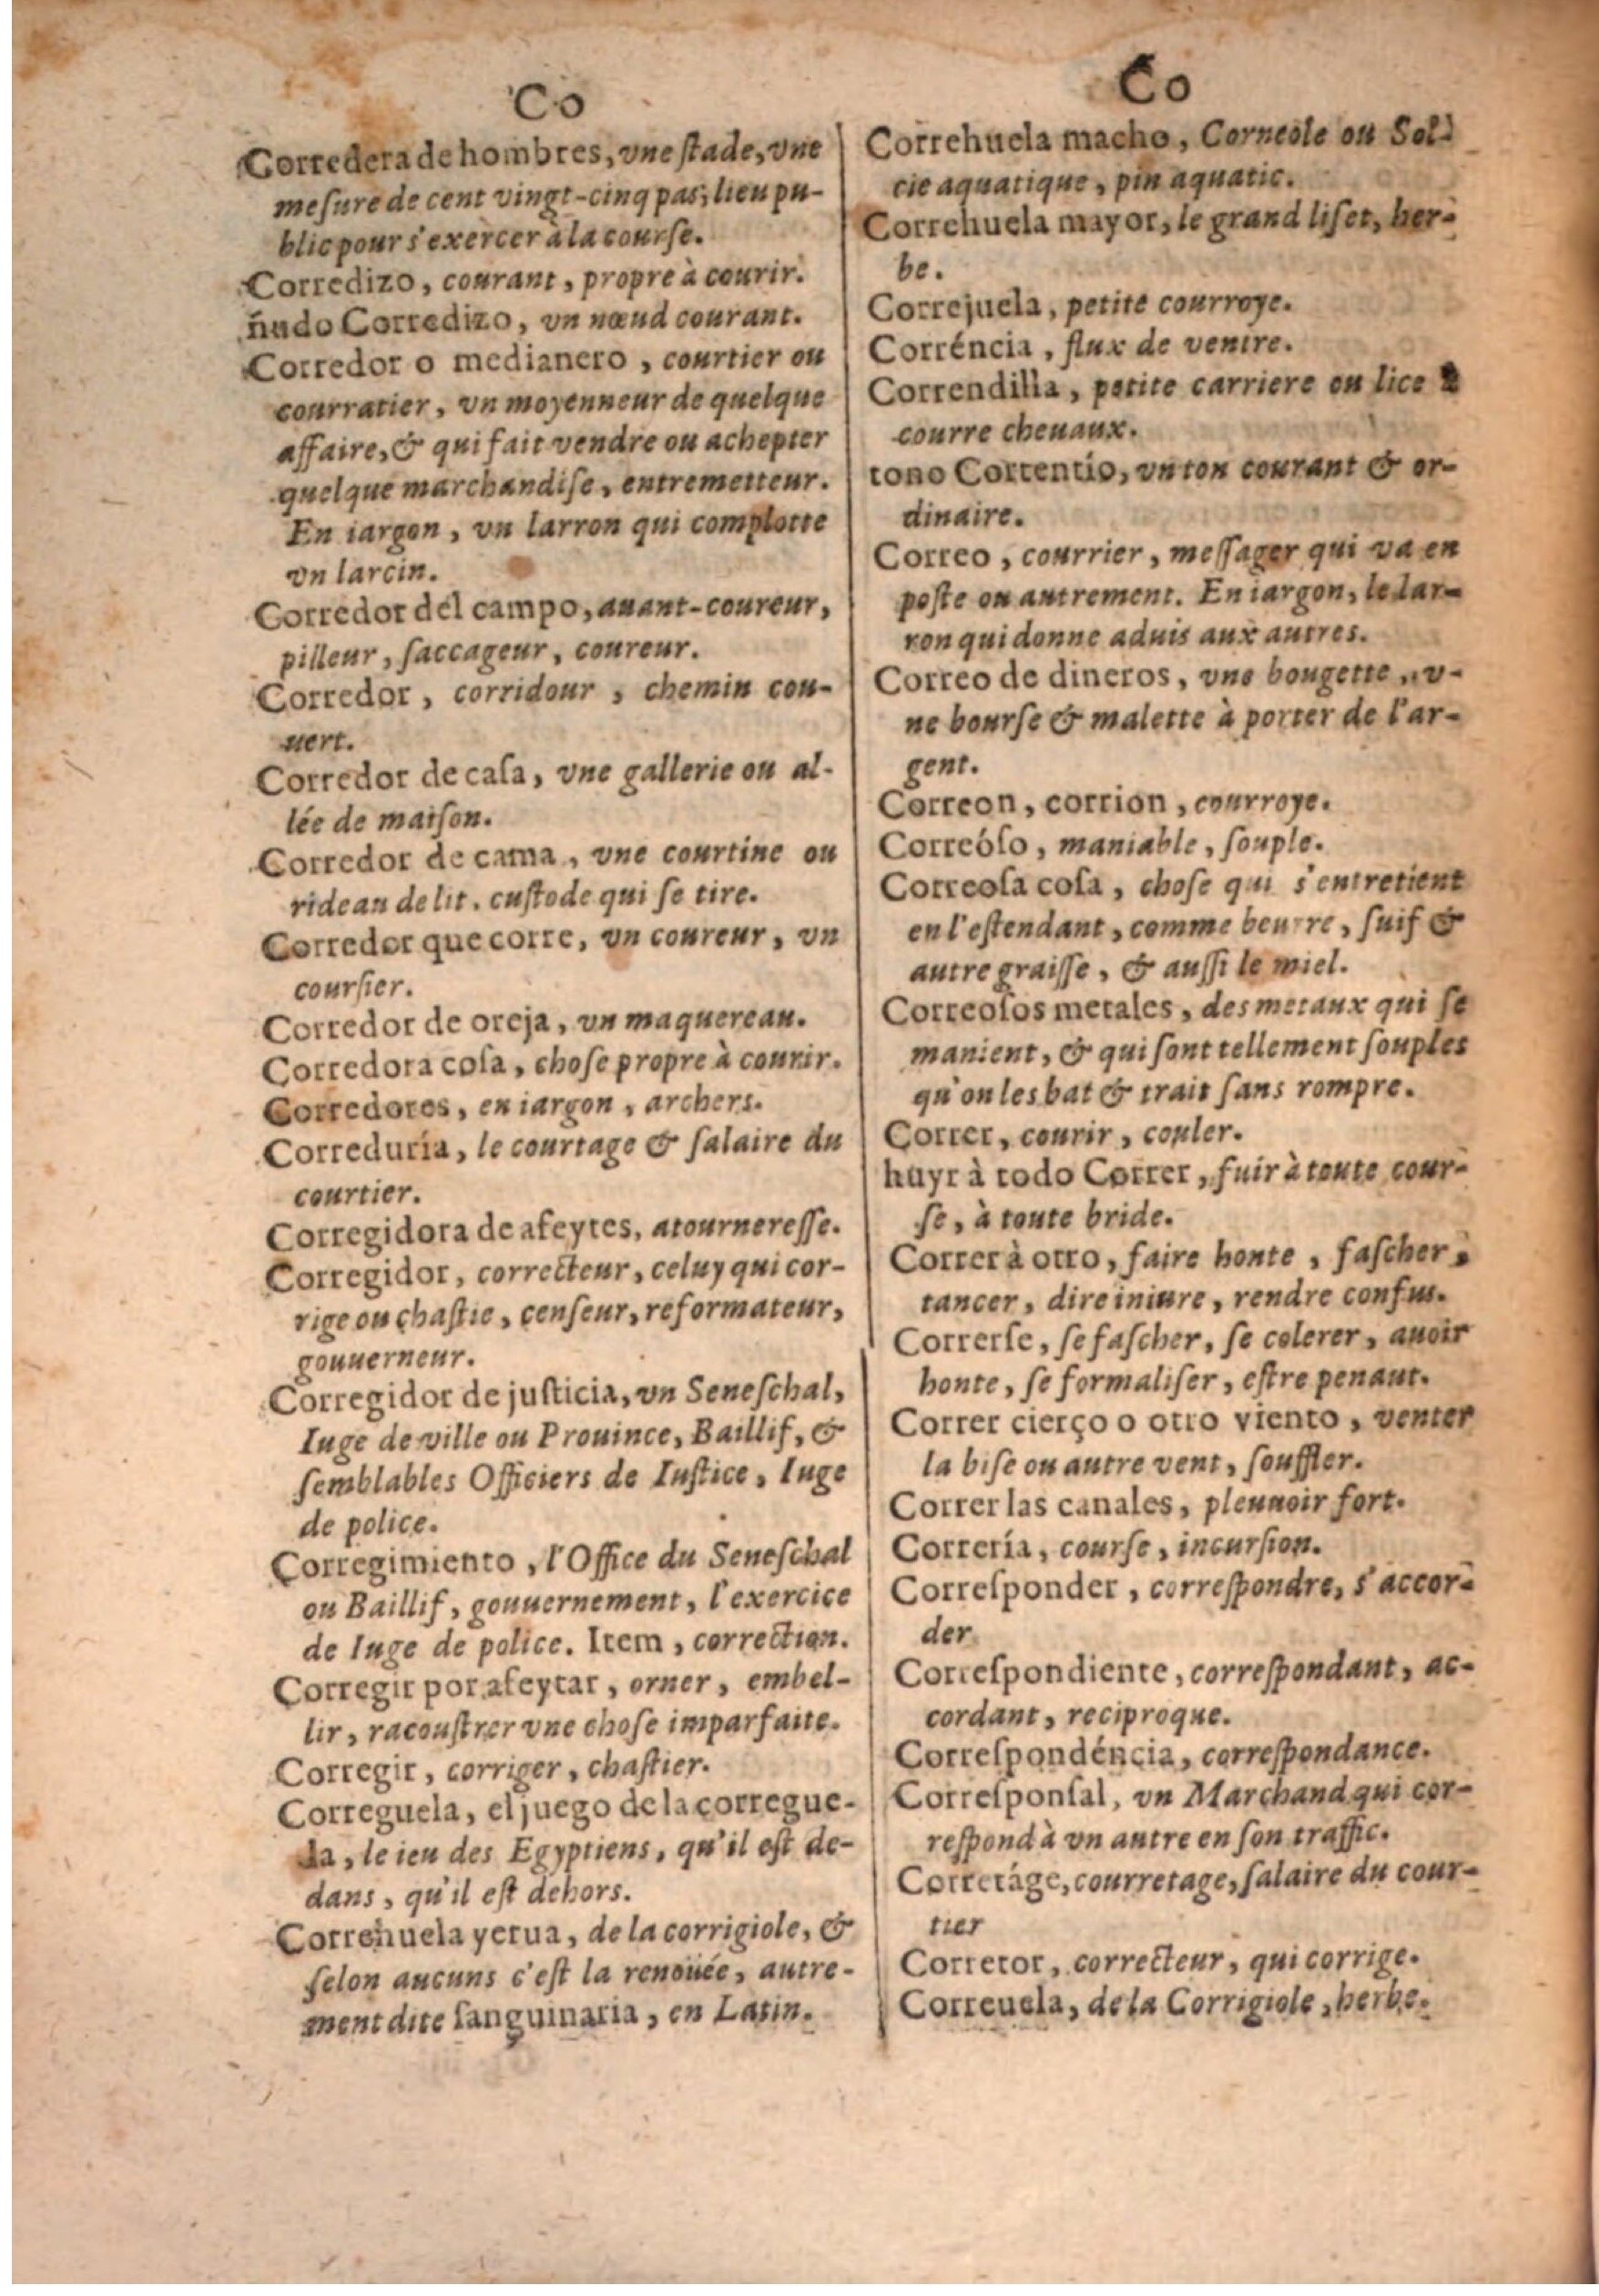 Co
Corredera de hombres, vne ſtade, vne
meſure de cent vingt-cinq pas, lieu pu-
blic pour s'exercer à la courſe.
Corredizo, courant, propre à courir.
ñudo Corredizo, vn nœud courant.
Corredor o medianero, courtier ou
courratier, vn moyenneur de quelque
affaire, & qui fait vendre ou achepter
quelque marchandiſe, entremetteur.
En iargon, vn larron qui complotte
vn larcin.
Corredor del campo, auant-coureur,
pilleur, ſaccageur, coureur.
Corredor, corridour, chemin cou-
uert.
Corredor de caſa, vne gallerie ou al-
lée de maiſon.
Corredor de cama, vne courtine ou
rideau de lit, cuſtode qui ſe tire.
Corredor que corre, vn coureur, vn
courſier.
Corredor de oreja, vn maquereau.
Corredora coſa, choſe propre à courir.
Corredores, en iargon, archers.
Correduría, le courtage & ſalaire du
courtier.
Corregidora de afeytes, atourneresſe.
Corregidor, correcteur, celuy qui cor-
rige ou chaſtie, cenſeur, reformateur,
gouuerneur.
Corregidor de juſticia, vn Seneſchal,
Iuge de ville ou Prouince, Baillif, &
ſemblables Officiers de Iuſtice, Iuge
de police.
Corregimiento, l'Office du Seneſchal
ou Baillif, gouuernement, l'exercice
de Iuge de police. Item, correction.
Corregir por afeytar, orner, embel-
lir, racouſtrer vne choſe imparfaite.
Corregir, corriger, chaſtier.
Correguela, el juego de la corregue-
la, le ieu des Egyptiens, qu'il eſt de-
dans, qu'il eſt dehors.
Correhuela yerua, de la corrigiole, &
ſelon aucuns c'eſt la renoüée, autre-
ment dite ſanguinaria, en Latin.
Co
Correhuela macho, Corneole ou Sol-
cie aquatique, pin aquatic.
Correhuela mayor, le grand liſet, her-
be.
Correjuela, petite courroye.
Corréncia, flux de ventre.
Correndilla, petite carriere ou lice à
courre cheuaux.
tono Correntío, vn ton courant & or-
dinaire.
Correo, courrier, meſſager qui va en
poſte ou autrement. En iargon, le lar-
ron qui donne aduis aux autres.
Correo de dineros, vne bougette, v-
ne bourſe & malette à porter de l'ar-
gent.
Correon, corrion, courroye.
Correóſo, maniable, ſouple.
Correoſa coſa, choſe qui s'entretient
en l'eſtendant, comme beurre, ſuif &
autre graiſſe, & auſſi le miel.
Correoſos metales, des metaux qui ſe
manient, & qui ſont tellement ſouples
qu'on les bat & trait ſans rompre.
Correr, courir, couler.
huyr à todo Correr, fuir à toute cour-
ſe, à toute bride.
Correr à otro, faire honte, faſcher,
tancer, dire iniure, rendre confus.
Correrſe, ſe faſcher, ſe colerer, auoir
honte, ſe formaliſer, eſtre penaut.
Correr cierço o otro viento, venter
la biſe ou autre vent, ſouffler.
Correr las canales, pleuuoir fort.
Correría, courſe, incurſion.
Correſponder, correſpondre, s'accor-
der
Correſpondiente, correſpondant, ac-
cordant, reciproque.
Correſpondéncia, correſpondance.
Correſponſal, vn Marchand qui cor-
reſpond à vn autre en ſon traffic.
Corretáge, courretage, ſalaire du cour-
tier
Corretor, correcteur, qui corrige.
Correuela, de la Corrigiole, herbe.